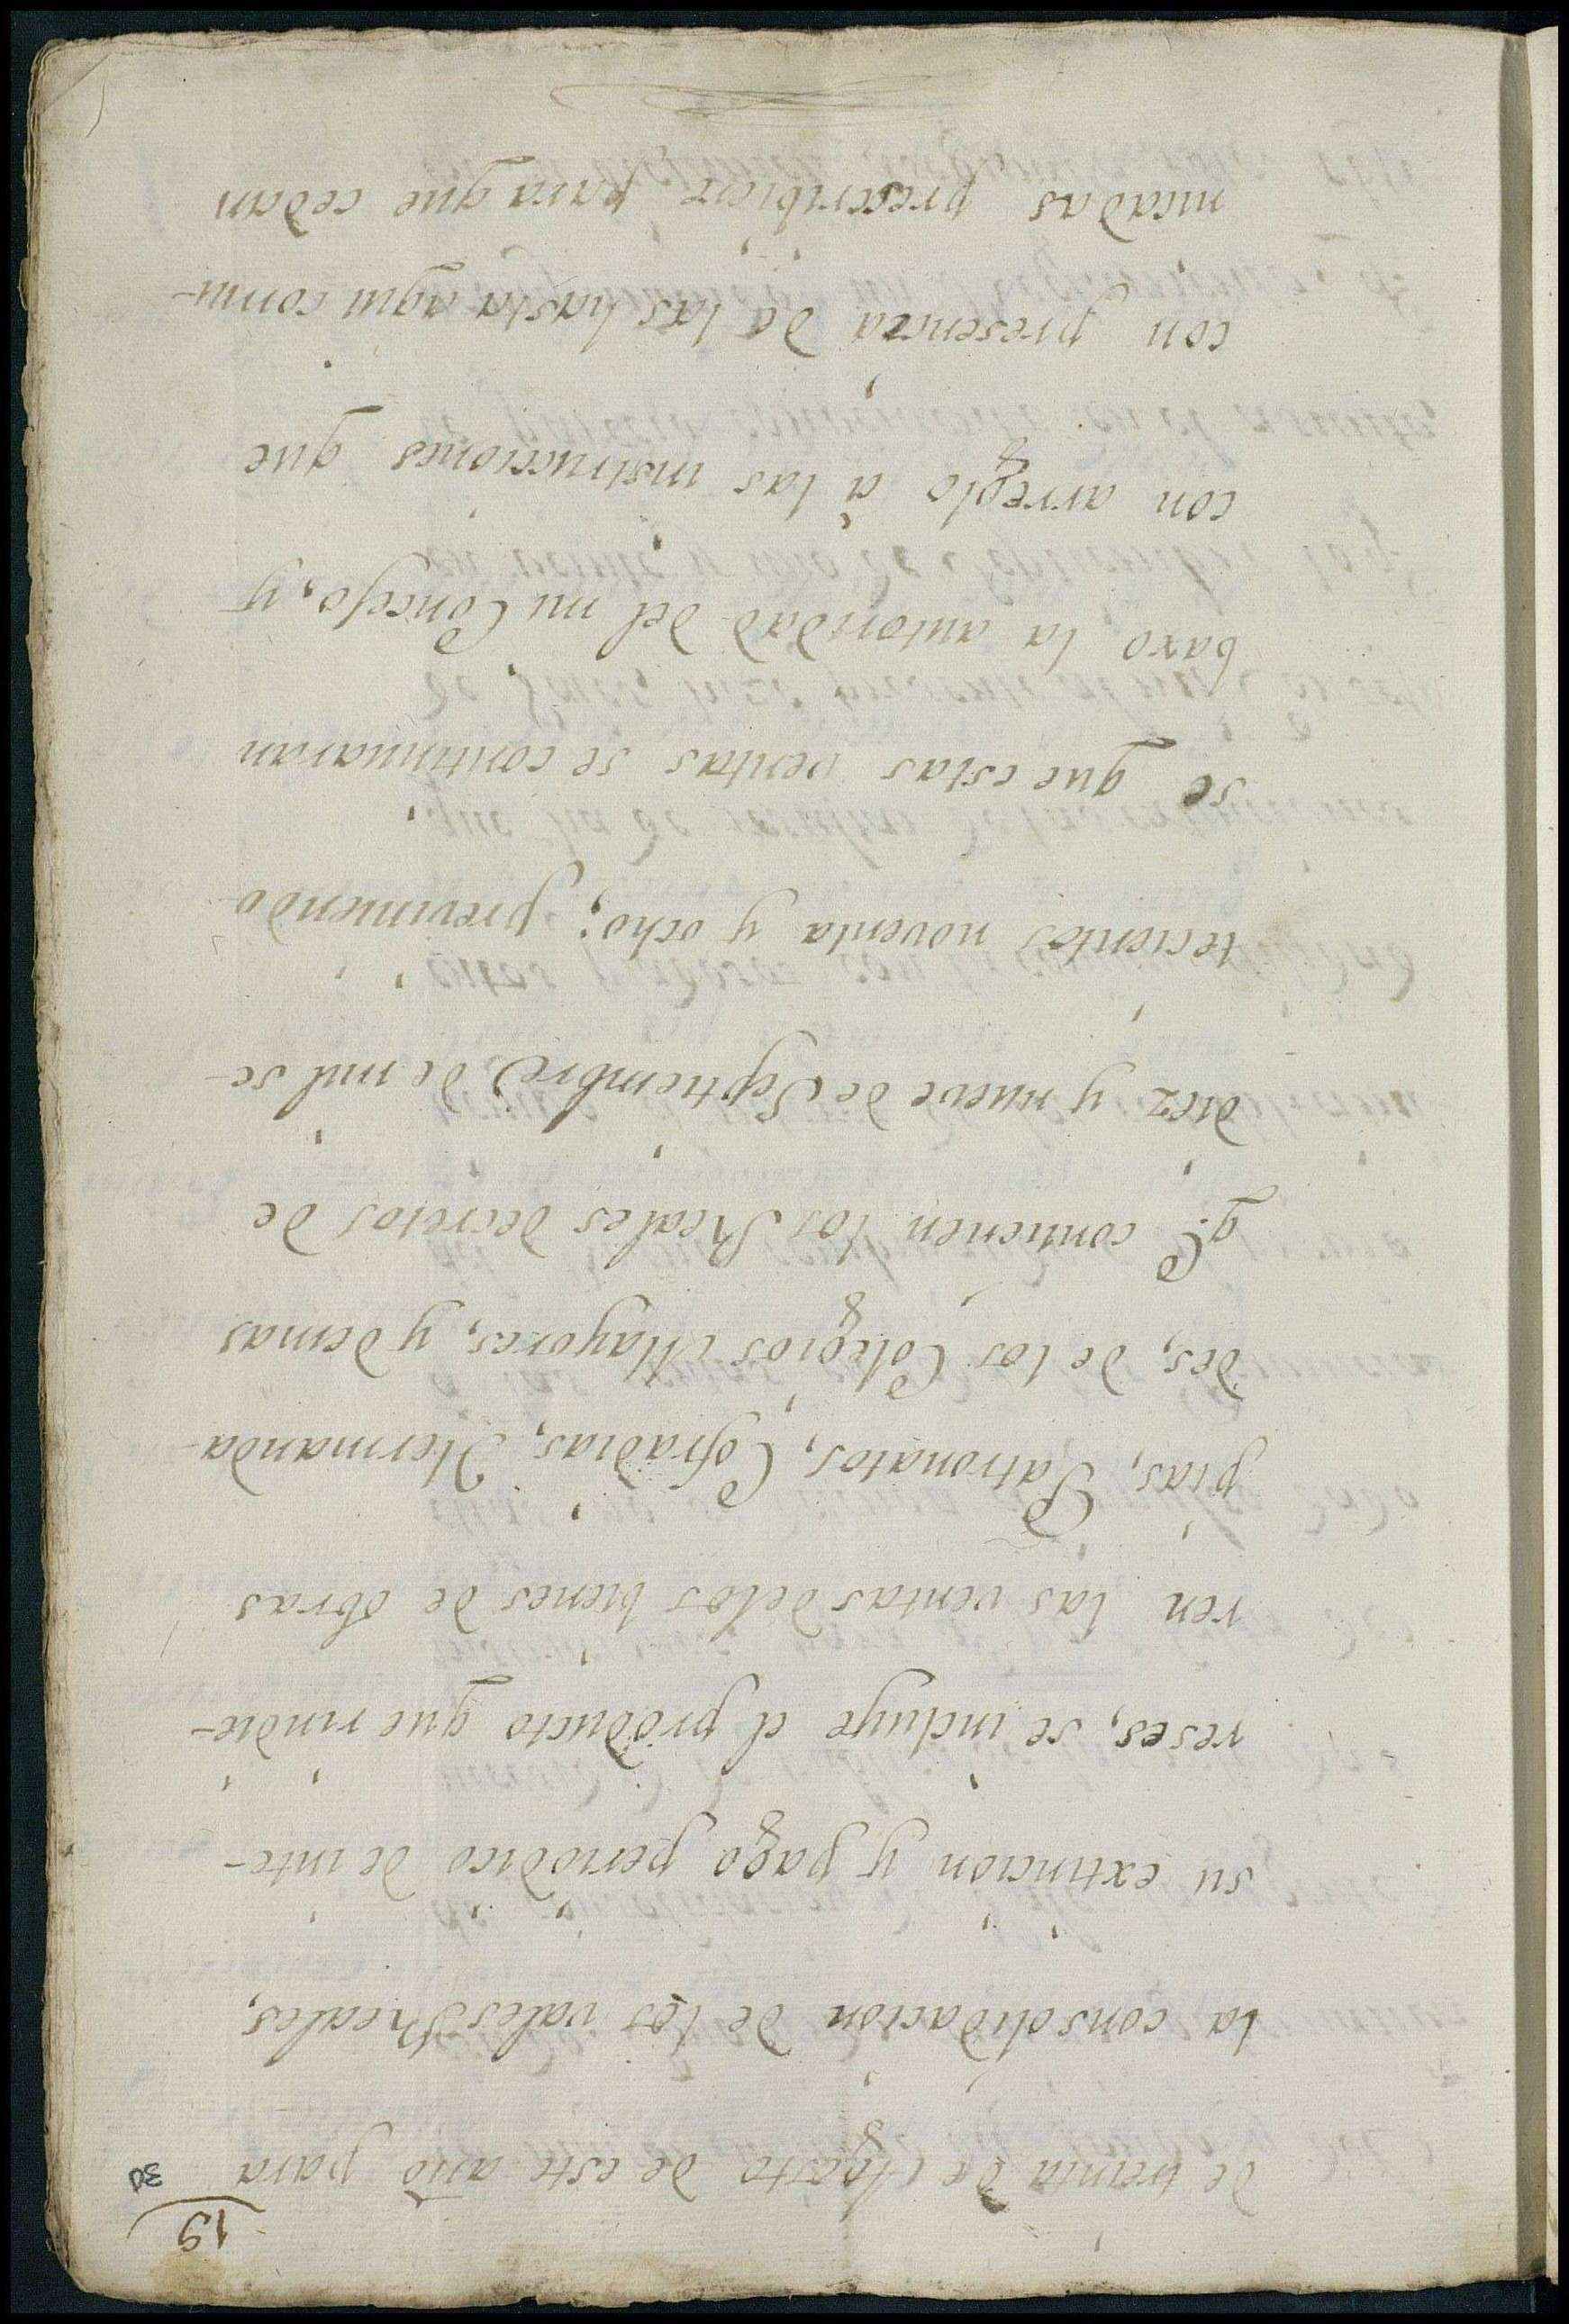 19
30
de treinta de Agosto de este año para
la consolidacion de los vales Reales,
su extincion y pago periodico de inte-
reses, se incluye el producto que rindie-
ren las ventas delos bienes de obras
pias, Patronatos, Cofradias, Hermanda-
des, de los Colegios Mayores, y demas
q.e contienen los Reales decretos de
diez y nueve de Septiembre de mil se-
tecientos noventa y ocho; previniendo
se que estas ventas se continuaran
baxo la autoridad del mi Concejo, y
con arreglo á las instrucciones que
con presencia de las hasta aqui comu-
nicadas prescribiere para que cedan